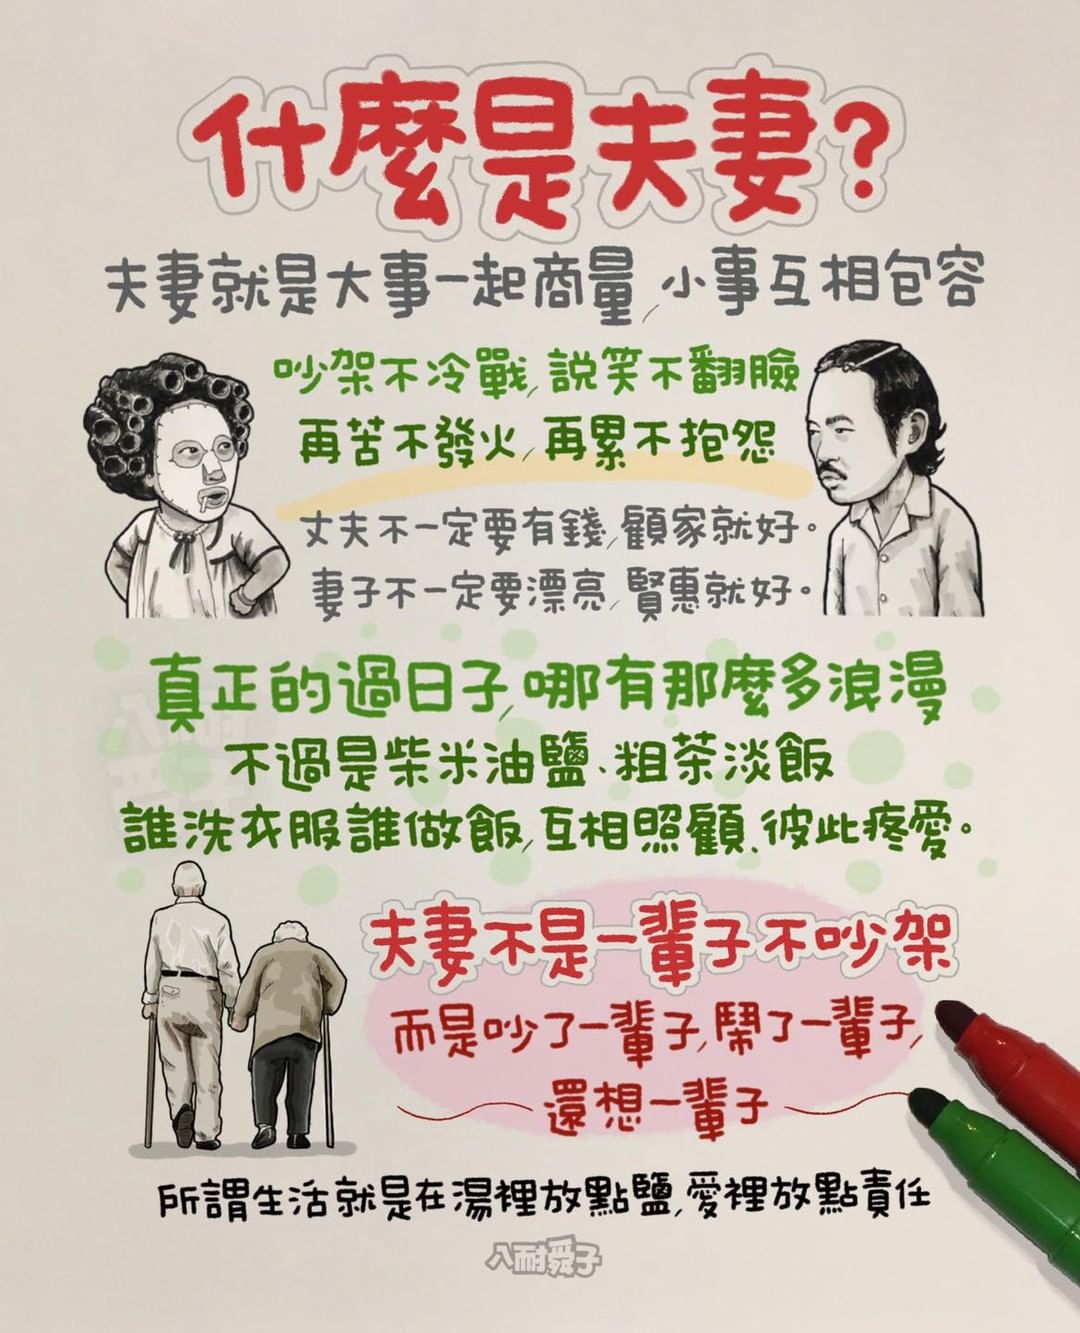 什麼是夫妻?
夫妻就是大事一起商量,小事互相包容
吵架不冷戰,說笑不翻臉
再苦不發火,再累不抱怨
丈夫不一定要有錢,顧家就好。
妻子不一定要漂亮,賢惠就好。
真正的過日子,哪有那麼多浪漫
不過是柴米油鹽、粗茶淡飯
誰洗衣服誰做飯,互相照顧、彼此疼愛。
夫妻不是一輩子不吵架
而是吵了一輩子,鬧了一輩子,
還想一輩子
所謂生活就是在湯裡放點鹽,愛裡放點責任
八耐舜子